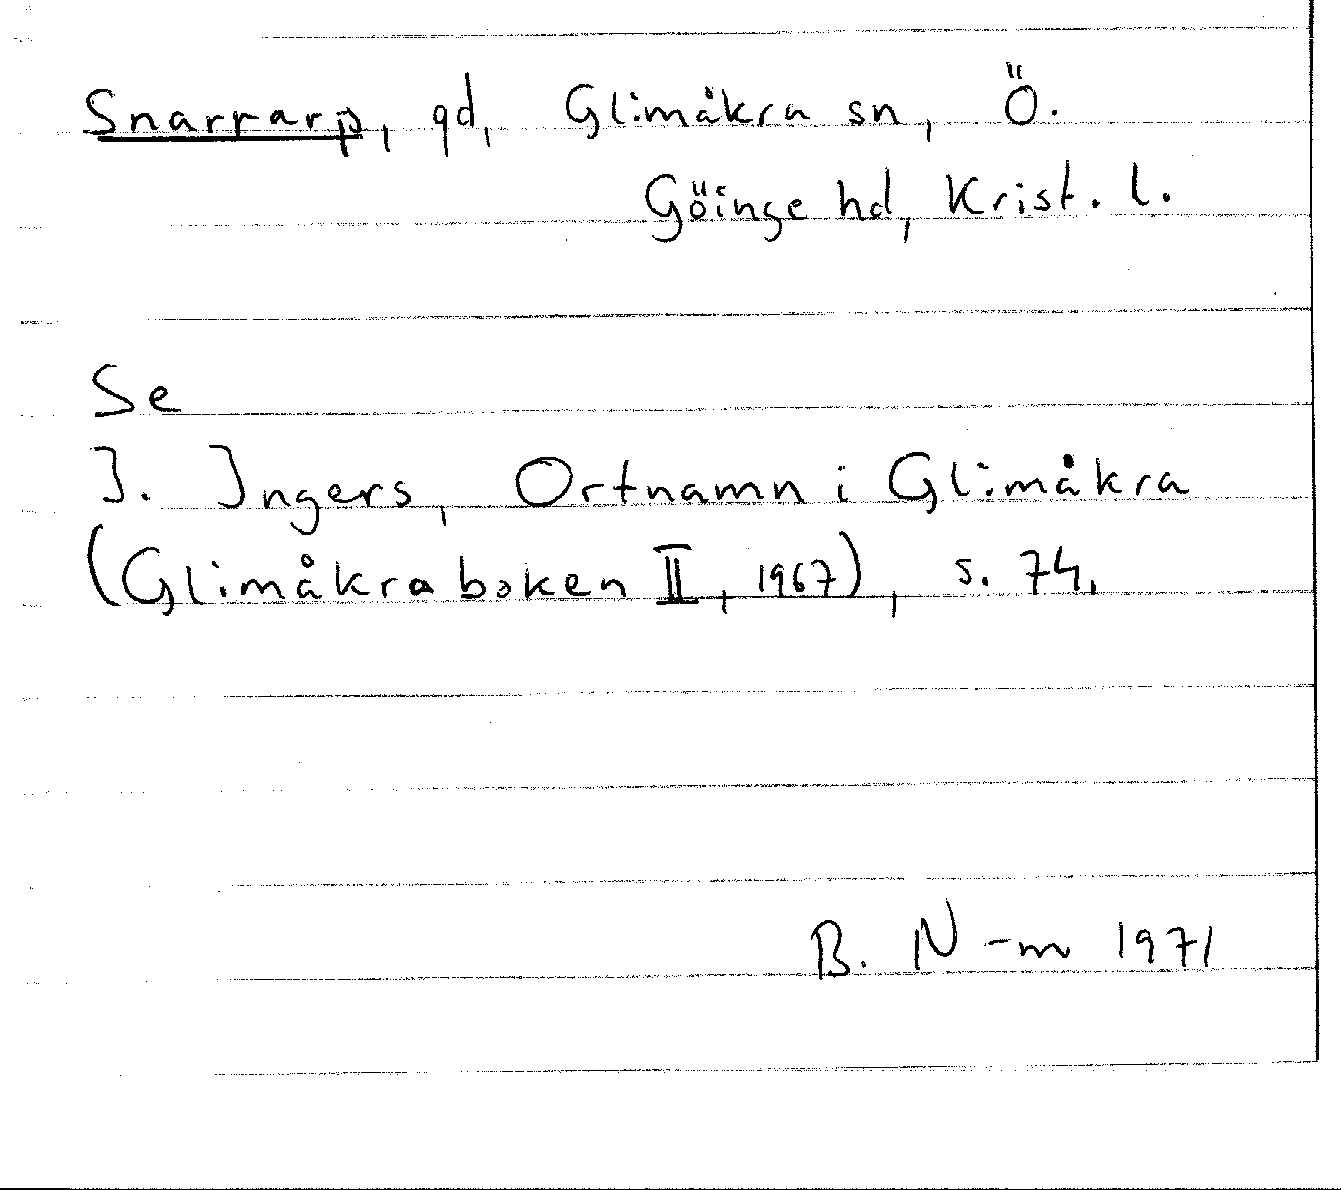 Snararp, gd, Glimåkra sn, Ö.
Göinge hd, Krist. l.
Se
I. Ingers, Ortnamn i Glimåkra
(Glimåkraboken II, 1967), s. 74.
B. N-m 1971